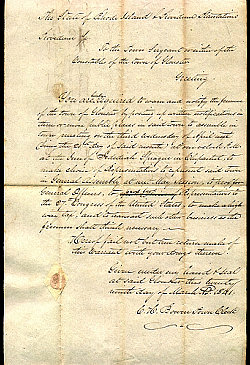 The State of Rhode Island & Providence Plantations
Providence Sc
To the Town Sergeant or either of the
Constables of the town of Gloucester
Greeting
You are required to warn and notify the freemen
of the town of Gloucester by posting up written notifications in
three or more public places in said town to assemble in
town meeting on the third Wednesday of April next
(being the 21st day of said month) at one o'clock P.M.
at the Inn of Sprague in Chepachet, to
make choice of Representatives to represent said town
in General Assembly at May Session, to
General Officers, to Representatives to
the 27th Congress of the United States, to make which
tax, and to transact such other business as the
freemen shall think necessary
Hereof fail not but true return make of
this Warrant with your doings thereon
Given under my hand & Seal
at said Gloucester this twenty
ninth day of March AD. 1841.
Bowen Town Clerk